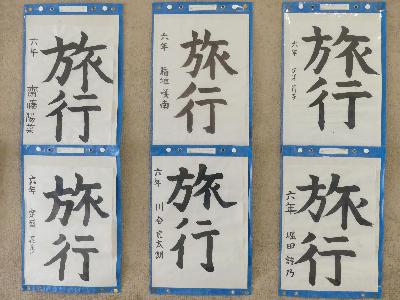 旅行
六年
齋藤陽菜
旅行
六年
稲垣美南
旅行
六年
旅行
六年
旅行
六年
川合宏太朗
旅行
六年
堀田詩乃